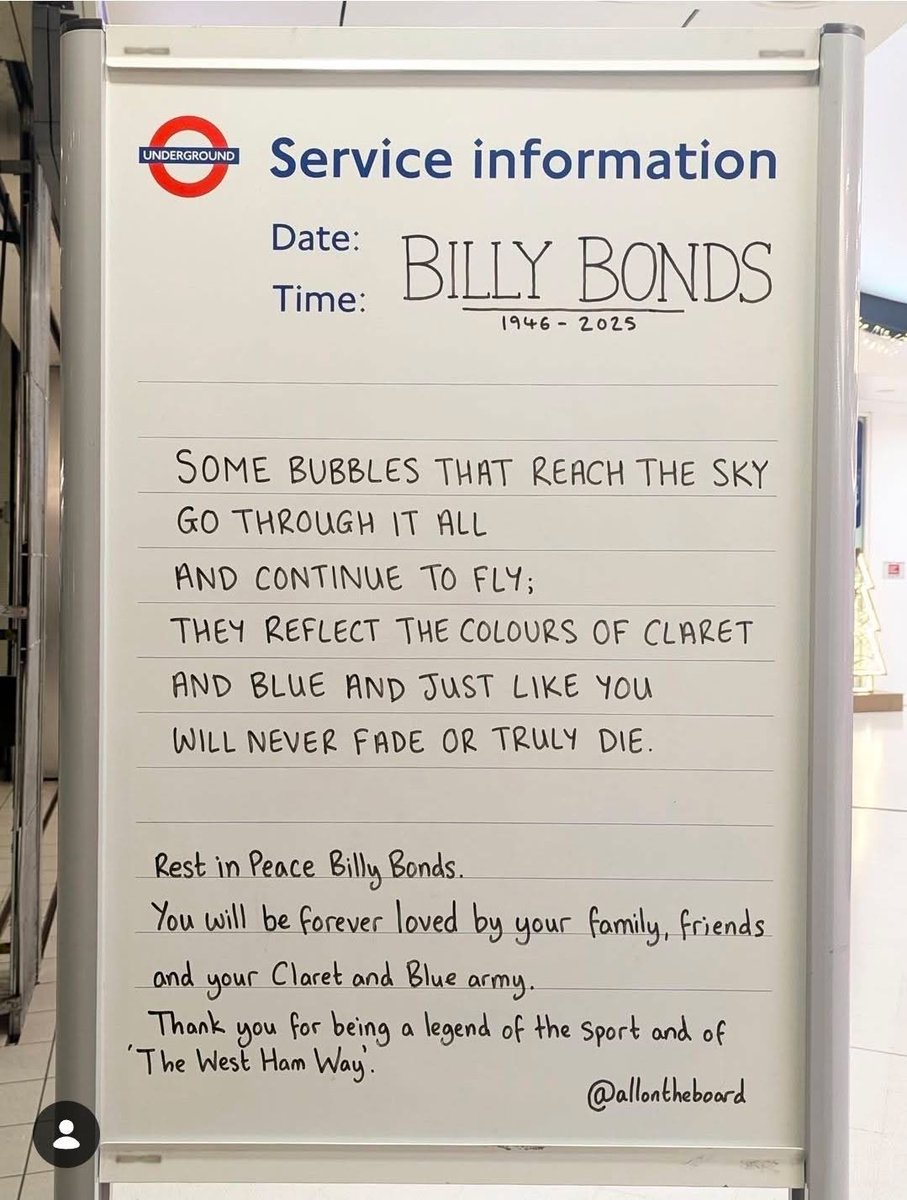 UNDERGROUND
Service information
Date:
Time:
BILLY BONDS
1946 - 2025
SOME BUBBLES THAT REACH THE SKY
GO THROUGH IT ALL
AND CONTINUE TO FLY;
THEY REFLECT THE COLOURS OF CLARET
AND BLUE AND JUST LIKE YOU
WILL NEVER FADE OR TRULY DIE.
Rest in Peace Billy Bonds.
You will be forever loved by your family, friends
and your Claret and Blue army.
Thank you for being a legend of the sport and of
'The West Ham Way'.
@allontheboard